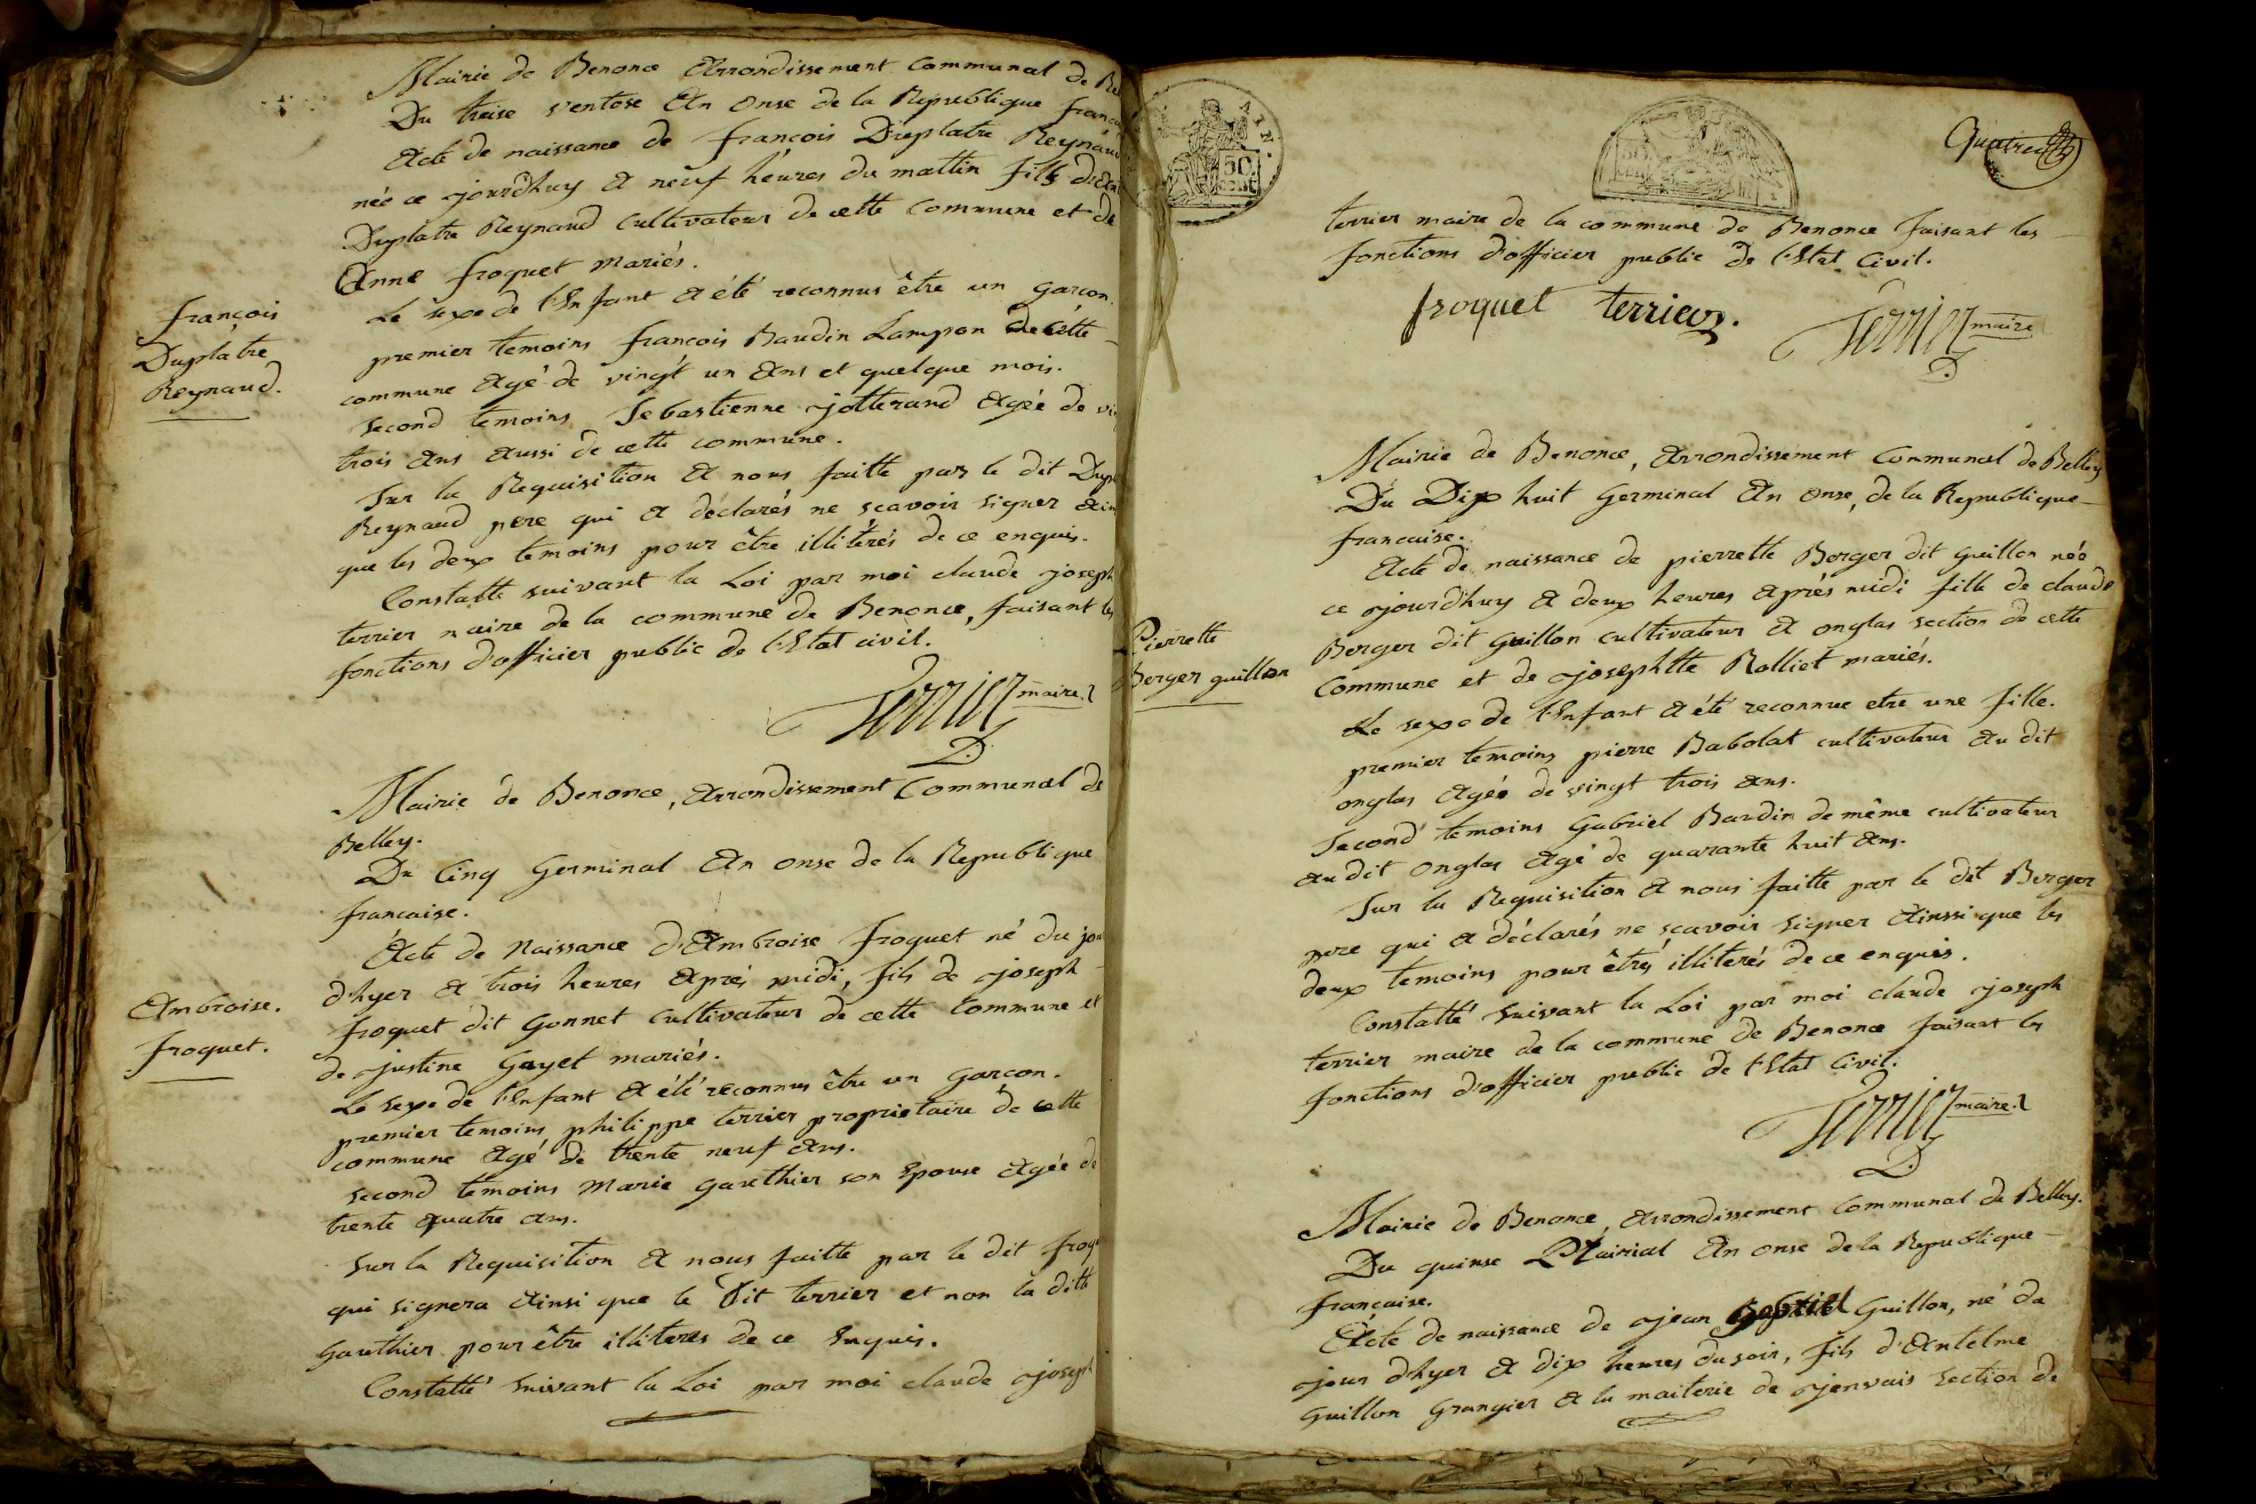 Mairie de Benonce Arrondissement Communal de Be
Du treise ventose An onse de la Republique franca
Acte de naissance de françois Duplatre Reynaud
née ce jourdhuy a neuf heures du mattin fills
Duplatre Reynaud cultivateur de cette commune et de
Anne froquet mariés.
Le sexe de l'Enfant a été reconnus être un garcon.
premier temoins françois Baudin Lampon de cette
commune agé de vingt un ans et quelque mois.
second temoins Sebastienne jotterand agée de vin
trois ans aussi de cette commune.
Sur la Requisition a nous faitte par le dit Dup
Reynaud pere qui a déclarés ne scavoir signer ain
que les deux temoins pour être illiterés de ce enquis.
Constatte suivant la Loi par moi claude joseph
terrier maire de la commune de Benonce, faisant les
fonctions d'officier public de l'Etat civil.
Terrier maire
françois
Duplatre
Reynaud.
Mairie de Benonce, Arrondissement Communal de
Belley.
Du Cinq Germinal An onse de la Republique
francaise.
Acte de Naissance d'Ambroise froquet né du jou
d'hyer a trois heures après midi, fils de joseph
froquet dit Gonnet cultivateur de cette Commune et
de justine Gayet mariés.
Le sexe de l'Enfant a été reconnus être un garcon.
premier temoins philippe terrier proprietaire de cette
commune agé de trente neuf ans.
second temoins Marie gauthier son Epouse agée de
trente quatre ans.
Sur la Requisition a nous faitte par le dit froq
qui signera ainsi que le dit terrier et non la ditte
Gauthier pour être illiteres de ce Enquis.
Constatté suivant la Loi par moi claude joseph
Ambroise.
froquet.
AIN.
50
cent
Quatre
terrier maire de la commune de Benonce faisant les
fonctions d'officier public de l'Etat Civil.
froquet terrier.
Terrier maire
Mairie de Benonce, Arrondissement Communal de Belley
Du Dix huit Germinal An onse, de la Republique
francaise.
Acte de naissance de pierrette Berger dit guillon née
ce jourd'huy a deux heures après midi fille de claude
Berger dit guillon cultivateur a onglas section de cette
Commune et de josephtte Rolliet mariés.
Le sexe de l'Enfant a été reconnue etre une fille.
premier temoins pierre Babolat cultivateur au dit
onglas agée de vingt trois ans.
Second temoins Gabriel Bardin de même cultivateur
au dit onglas agé de quarante huit ans.
Sur la Requisition a nous faitte par le dit Berger
pere qui a déclarés ne scavoir signer ainssi que les
deux temoins pour êtres illiterés de ce enquis.
Constatté suivant la Loi par moi claude joseph
terrier maire de la commune de Benonce faisant les
fonctions d'officier public de l'Etat Civil.
Terrier maire
Pierrette
Berger guillon
Mairie de Benonce, arrondissement Communal de Belley.
Du quinse Plairial An onse de la Republique
francaise.
Acte de naissance de jean Guillon, né du
jour d'hyer a dix heures du soir, fils d'Antelme
Guillon Grangier a la maiterie de jenvais section de